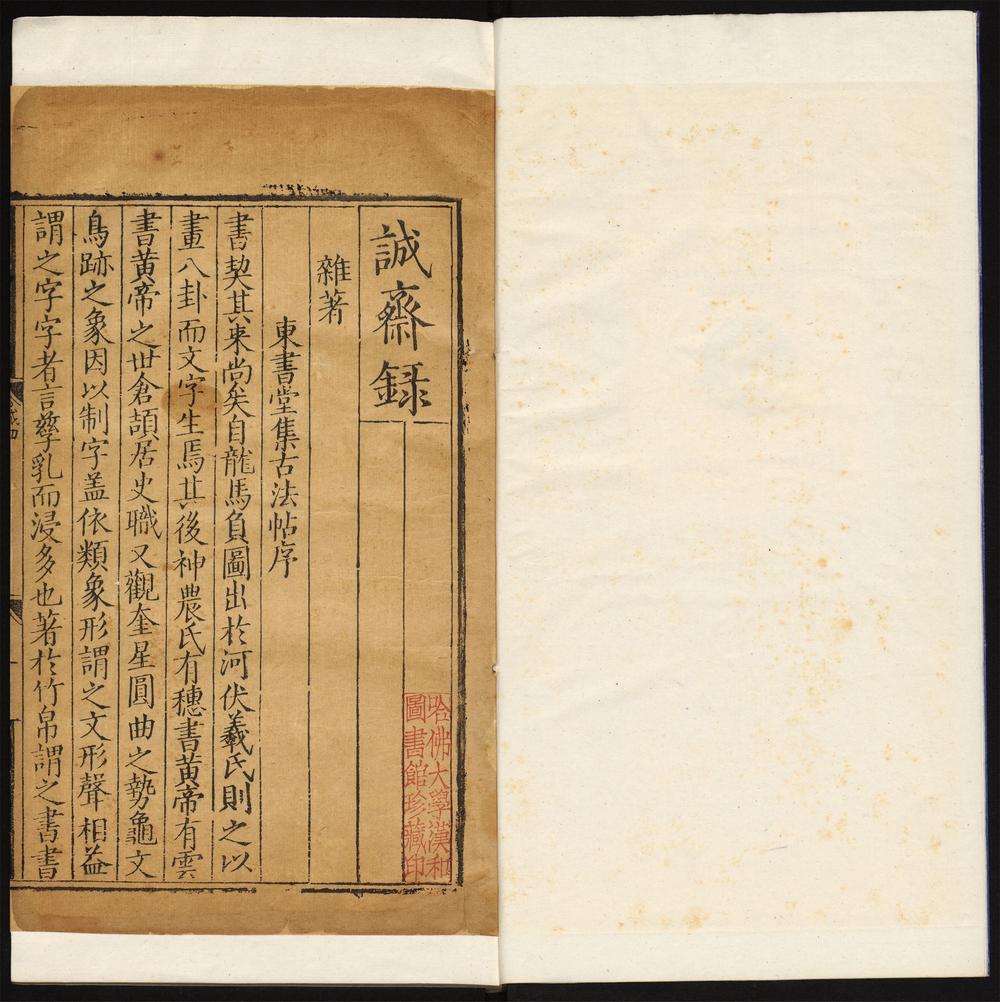 誠齋録
雜著
東書堂集古法帖序
書契其来尚矣自龍馬負圖出於河伏羲氏則之以
畫八卦而文字生焉其後神農氏有穗書黄帝有雲
書黄帝之世倉頡居史職又觀奎星圓曲之勢龜文
鳥跡之象因以制字盖依類象形謂之文形聲相益
謂之字字者言孳乳而浸多也著於竹帛謂之書書
哈佛大學漢和
圖書館珍藏印